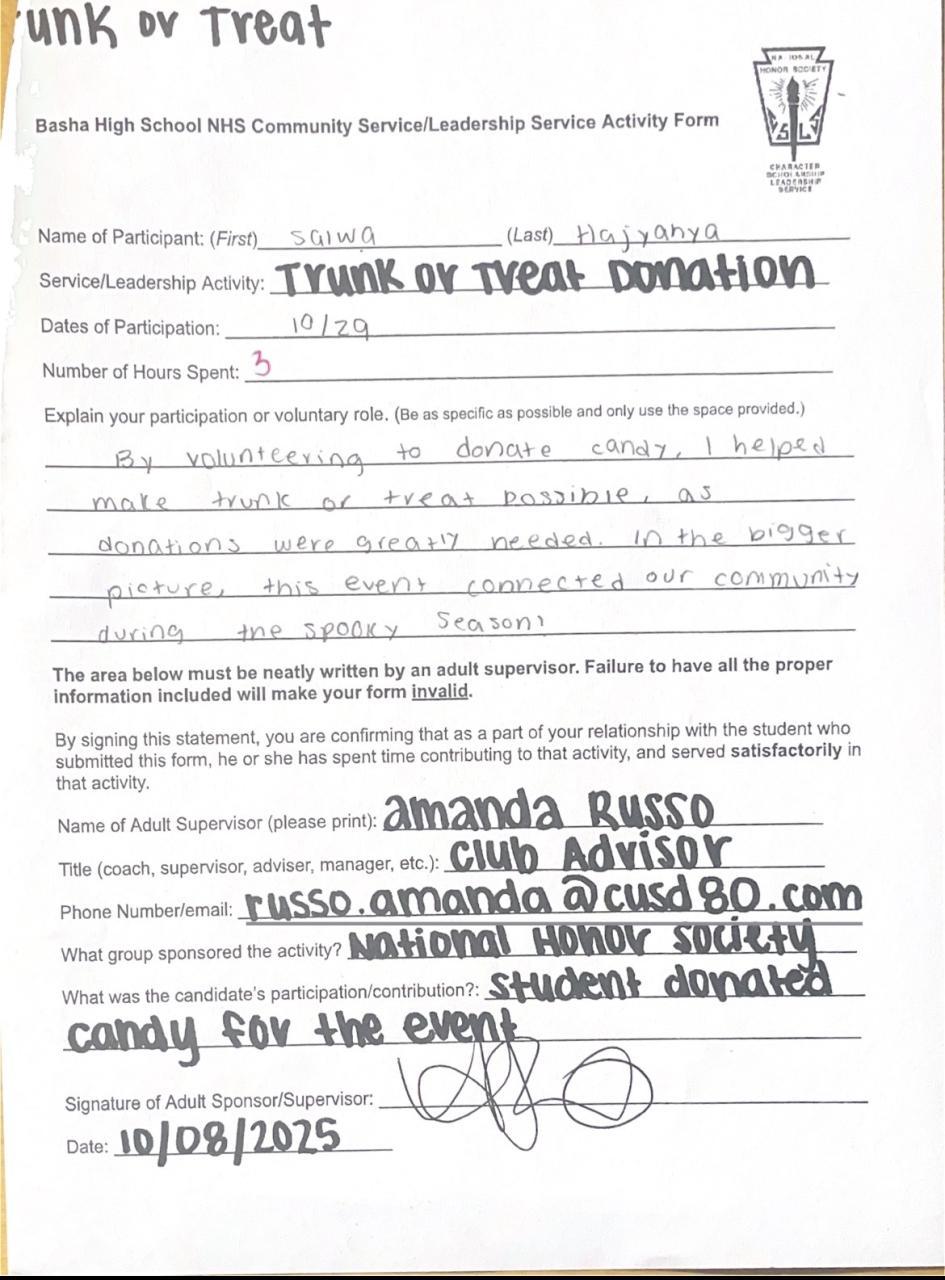 runk or Treat
NATIONAL
HONOR SOCIETY
S L S
CHARACTER
SCHOLARSHIP
LEADERSHIP
SERVICE
Basha High School NHS Community Service/Leadership Service Activity Form
Name of Participant: (First) Salwa (Last) Hajyahya
Service/Leadership Activity: Trunk or Treat Donation
Dates of Participation: 10/29
Number of Hours Spent: 3
Explain your participation or voluntary role. (Be as specific as possible and only use the space provided.)
By volunteering to donate candy, I helped
make trunk or treat possible, as
donations were greatly needed. In the bigger
picture, this event connected our community
during the spooky season!
The area below must be neatly written by an adult supervisor. Failure to have all the proper
information included will make your form invalid.
By signing this statement, you are confirming that as a part of your relationship with the student who
submitted this form, he or she has spent time contributing to that activity, and served satisfactorily in
that activity.
Name of Adult Supervisor (please print): amanda Russo
Title (coach, supervisor, adviser, manager, etc.): Club Advisor
Phone Number/email: russo.amanda@cusd80.com
What group sponsored the activity? National Honor Society
What was the candidate's participation/contribution?: Student donated
candy for the event
Signature of Adult Sponsor/Supervisor:
Date: 10/08/2025